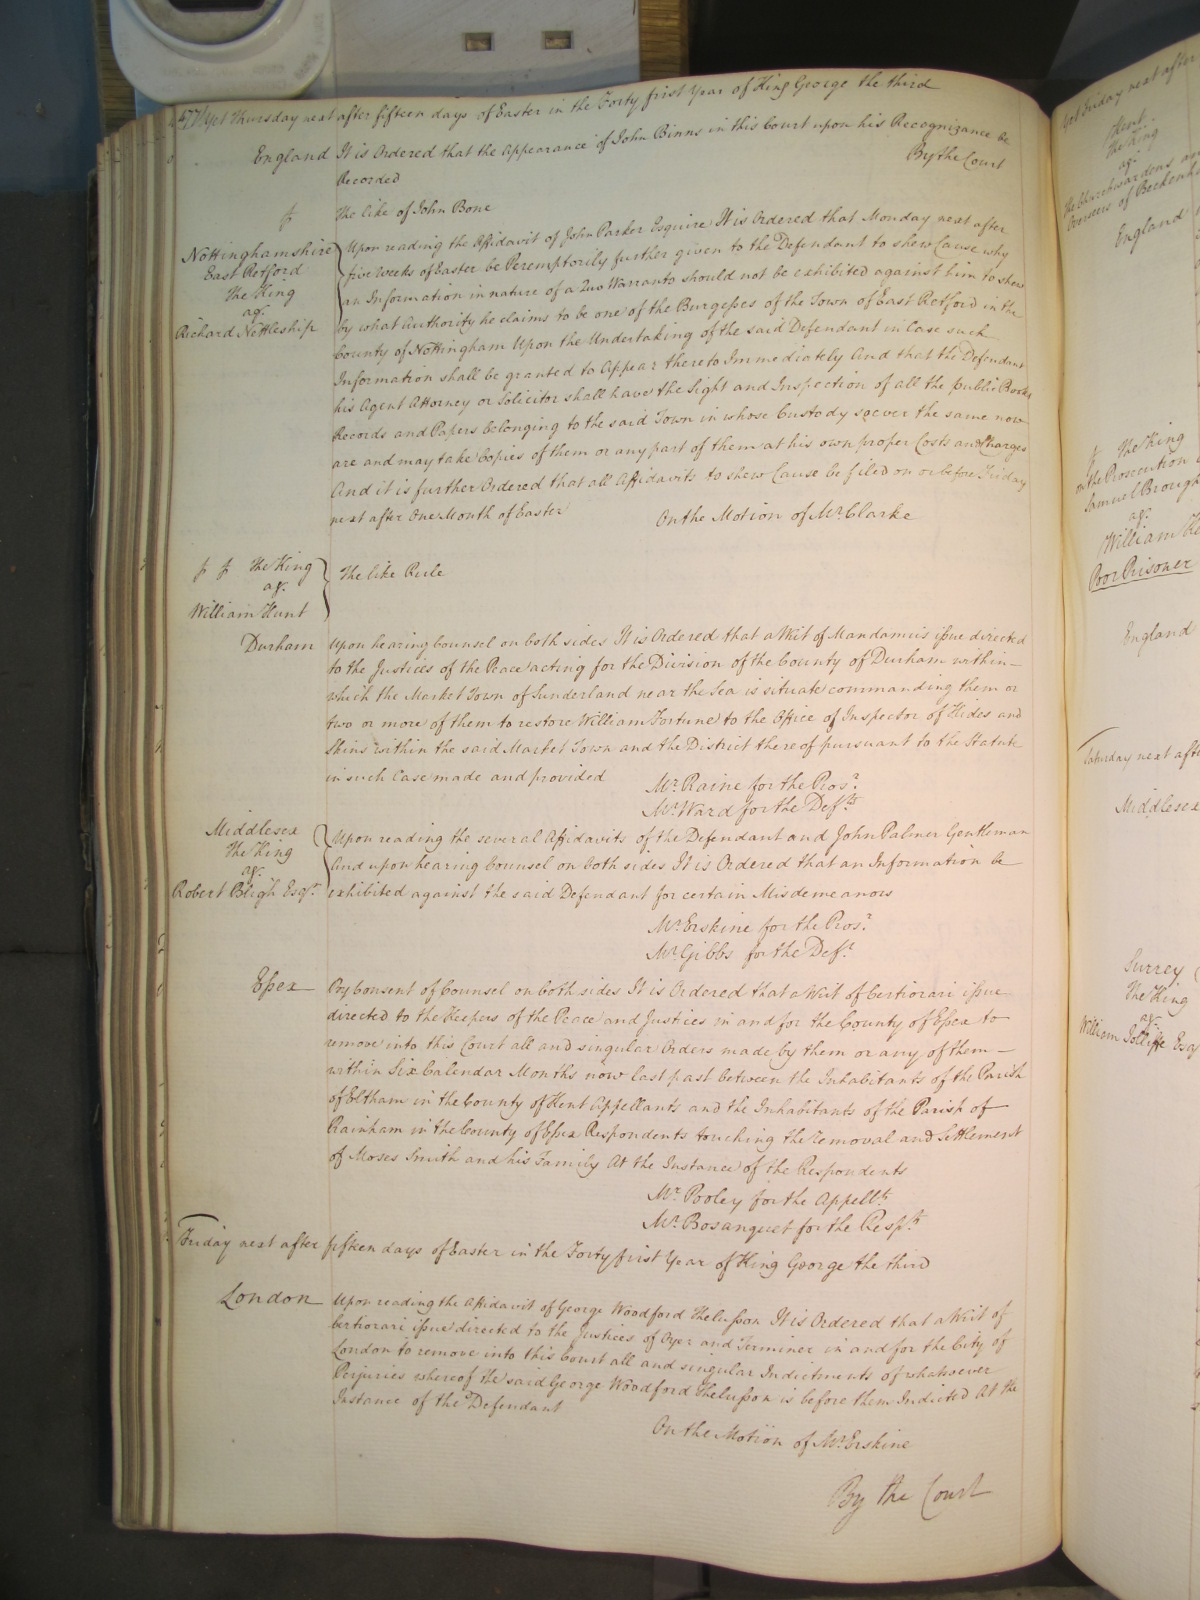 Yet Thursday next after fifteen days of Easter in the Forty first Year of King George the third
England It is Ordered that the Appearance of John Binns in this Court upon his Recognizance be
Recorded By the Court
The like of John Bone
Nottinghamshire
East Retford
The King
agt.
Richard Nettleship
Upon reading the Affidavit of John Parker Esquire It is Ordered that Monday next after
five Weeks of Easter be Peremptorily further given to the Defendant to shew Cause why
an Information in nature of a Quo Warranto should not be exhibited against him to shew
by what Authority he claims to be one of the Burgesses of the Town of East Retford in the
County of Nottingham Upon the Undertaking of the said Defendant in Case such
Information shall be granted to Appear thereto Immediately And that the Defendant
his Agent Attorney or Solicitor shall have the Sight and Inspection of all the public Books
Records and Papers belonging to the said Town in whose Custody soever the same now
are and may take Copies of them or any part of them at his own proper Costs and Charges
And it is further Ordered that all Affidavits to shew Cause be filed on or before Friday
next after One Month of Easter On the Motion of Mr. Clarke
The King
agt.
William Hunt
The like Rule
Durham Upon hearing Counsel on both sides It is Ordered that a Writ of Mandamus issue directed
to the Justices of the Peace acting for the Division of the County of Durham within
which the Market Town of Sunderland near the Sea is situate commanding them or
two or more of them to restore William Fortune to the Office of Inspector of Hides and
Skins within the said Market Town and the District thereof pursuant to the Statute
in such Case made and provided
Mr. Raine for the Prosr.
Mr. Ward for the Defts.
Middlesex
The King
agt.
Robert Bligh Esqr.
Upon reading the several Affidavits of the Defendant and John Palmer Gentleman
And upon hearing Counsel on both sides It is Ordered that an Information be
exhibited against the said Defendant for certain Misdemeanors
Mr. Erskine for the Prosr.
Mr. Gibbs for the Deft.
Essex By Consent of Counsel on both sides It is Ordered that a Writ of Certiorari issue
directed to the Keepers of the Peace and Justices in and for the County of Essex to
remove into this Court all and singular Orders made by them or any of them
within Six Calendar Months now last past between the Inhabitants of the Parish
of Eltham in the County of Kent Appellants and the Inhabitants of the Parish of
Rainham in the County of Essex Respondents touching the removal and Settlement
of Moses Smith and his Family At the Instance of the Respondents
Mr. Pooley for the Appellts.
Mr. Bosanquet for the Respts.
Friday next after fifteen days of Easter in the Forty first Year of King George the third
London Upon reading the Affidavit of George Woodford Thelusson It is Ordered that a Writ of
Certiorari issue directed to the Justices of Oyer and Terminer in and for the City of
London to remove into this Court all and singular Indictments of whatsoever
Perjuries whereof the said George Woodford Thelusson is before them Indicted At the
Instance of the Defendant
On the Motion of Mr. Erskine
By the Court
Yet Friday next after
Kent
The King
agt.
The Churchwardens and
Overseers of
England
The King
on the Prosecution
Samuel Brough
agt.
William
Poor Prisoner
England
Saturday next after
Middlesex
Surrey
The King
agt.
William Jolliffe Esq